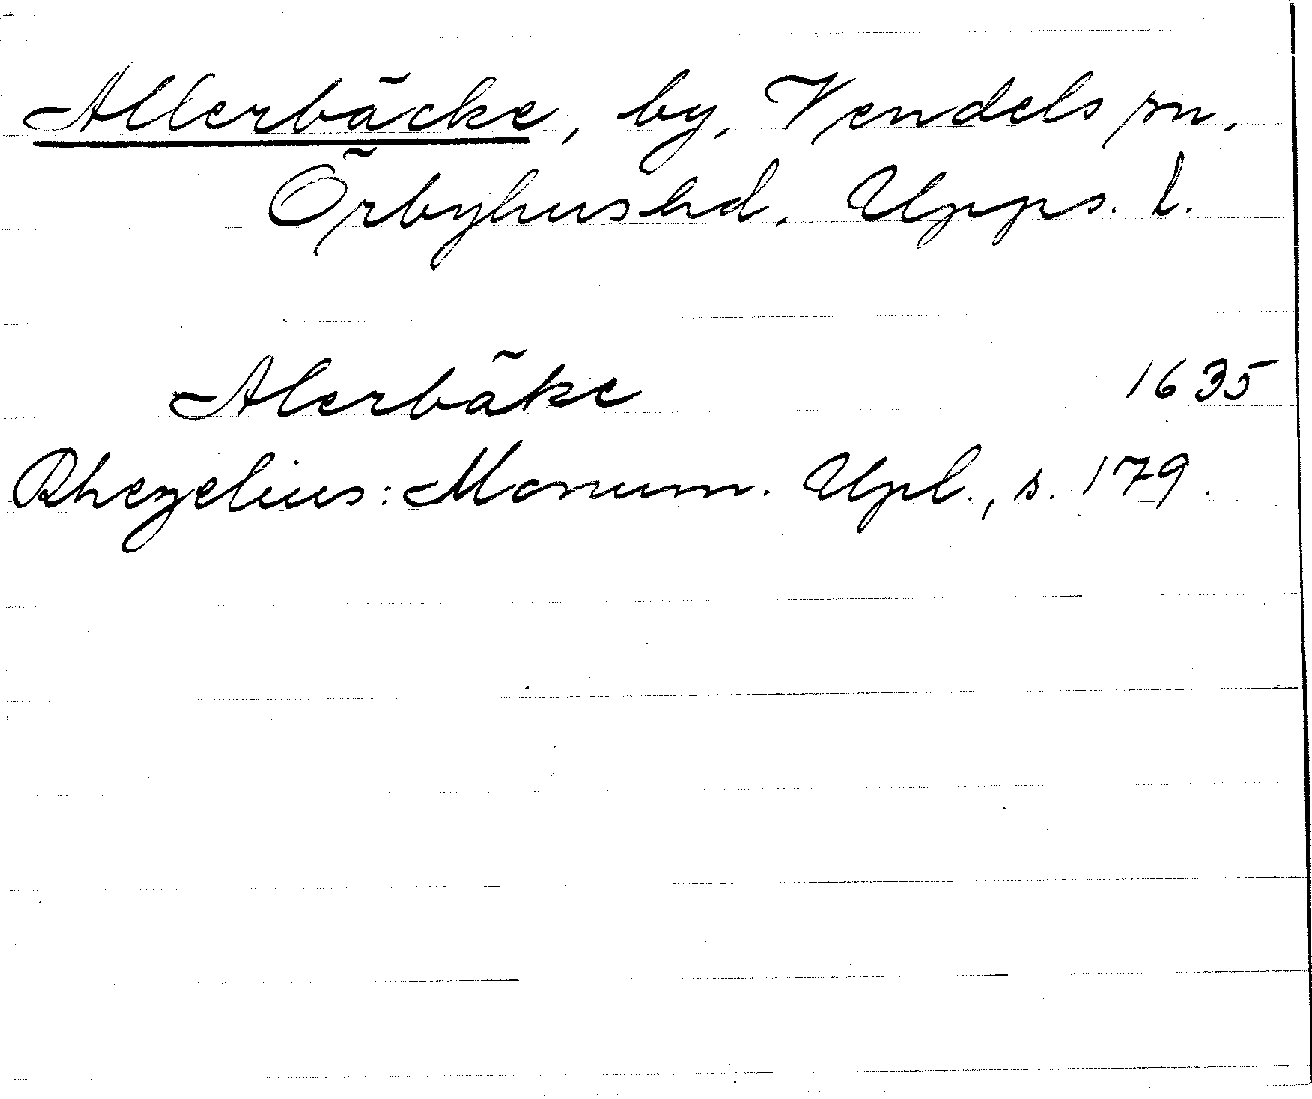 Allerbäcke, by, Vendels sn,
Örbyhus hd, Upps. l.
Alerbäke 1635
Rhezelius: Monum. Upl., s. 179.